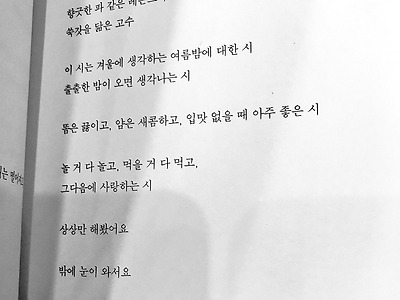 향긋한 파 같은
쑥갓을 닮은 고수
이 시는 겨울에 생각하는 여름밤에 대한 시
출출한 밤이 오면 생각나는 시
똠은 끓이고, 얌은 새콤하고, 입맛 없을 때 아주 좋은 시
놀 거 다 놀고, 먹을 거 다 먹고,
그다음에 사랑하는 시
상상만 해봤어요
밖에 눈이 와서요